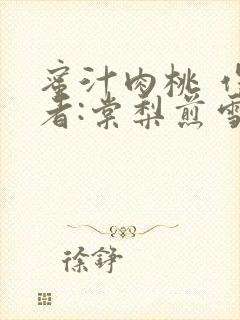 蜜汁肉桃 
者:棠梨煎
徐铮